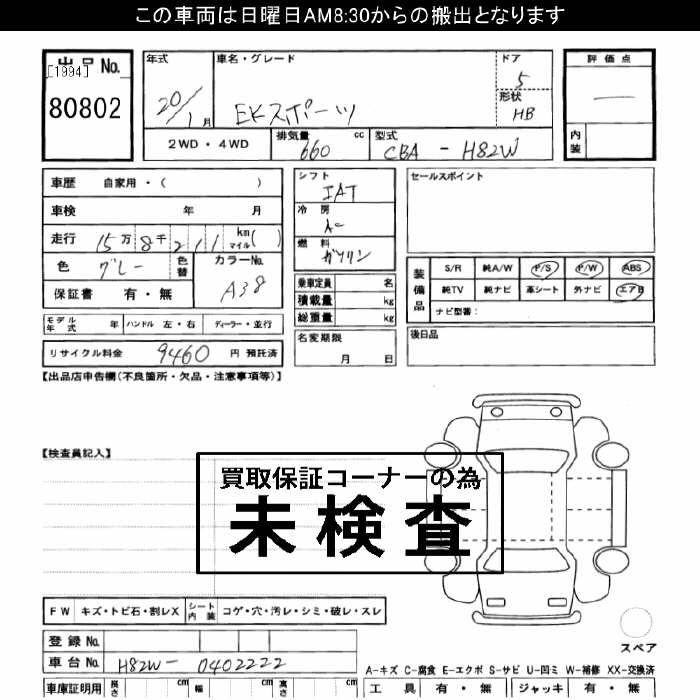 この車両は日曜日AM8:30からの搬出となります
出品No.
[1994]
80802
年式
20/1月
車名・グレード
EKスポーツ
ドア
5
形状
HB
評価点
—
内装
2WD・4WD
排気量
660 cc
型式
CBA - H82W
車歴 自家用・( )
車検 年 月
走行 15万8千211 kmマイル( )
色 グレー 色替
カラーNo.
A38
保証書 有・無
モデル年式 年 ハンドル 左・右 ディーラー・並行
リサイクル料金 9460 円 預託済
シフト
IAT
冷房
燃料
ガソリン
乗車定員 名
積載量 kg
総重量 kg
名変期限
月 日
セールスポイント
装備品
S/R 純A/W P/S P/W ABS
純TV 純ナビ 革シート 外ナビ エアB
ナビ型番:
後日品
【出品店申告欄(不良箇所・欠品・注意事項等)】
【検査員記入】
買取保証コーナーの為
未検査
FW キズ・トビ石・割レX シート内装 コゲ・穴・汚レ・シミ・破レ・スレ
登録No.
車台No. H82W - 0402222
車庫証明用 長さ cm 幅 cm 高さ cm
スペア
A-キズ C-腐食 E-エクボ S-サビ U-凹ミ W-補修 XX-交換済
工具 有・無 ジャッキ 有・無